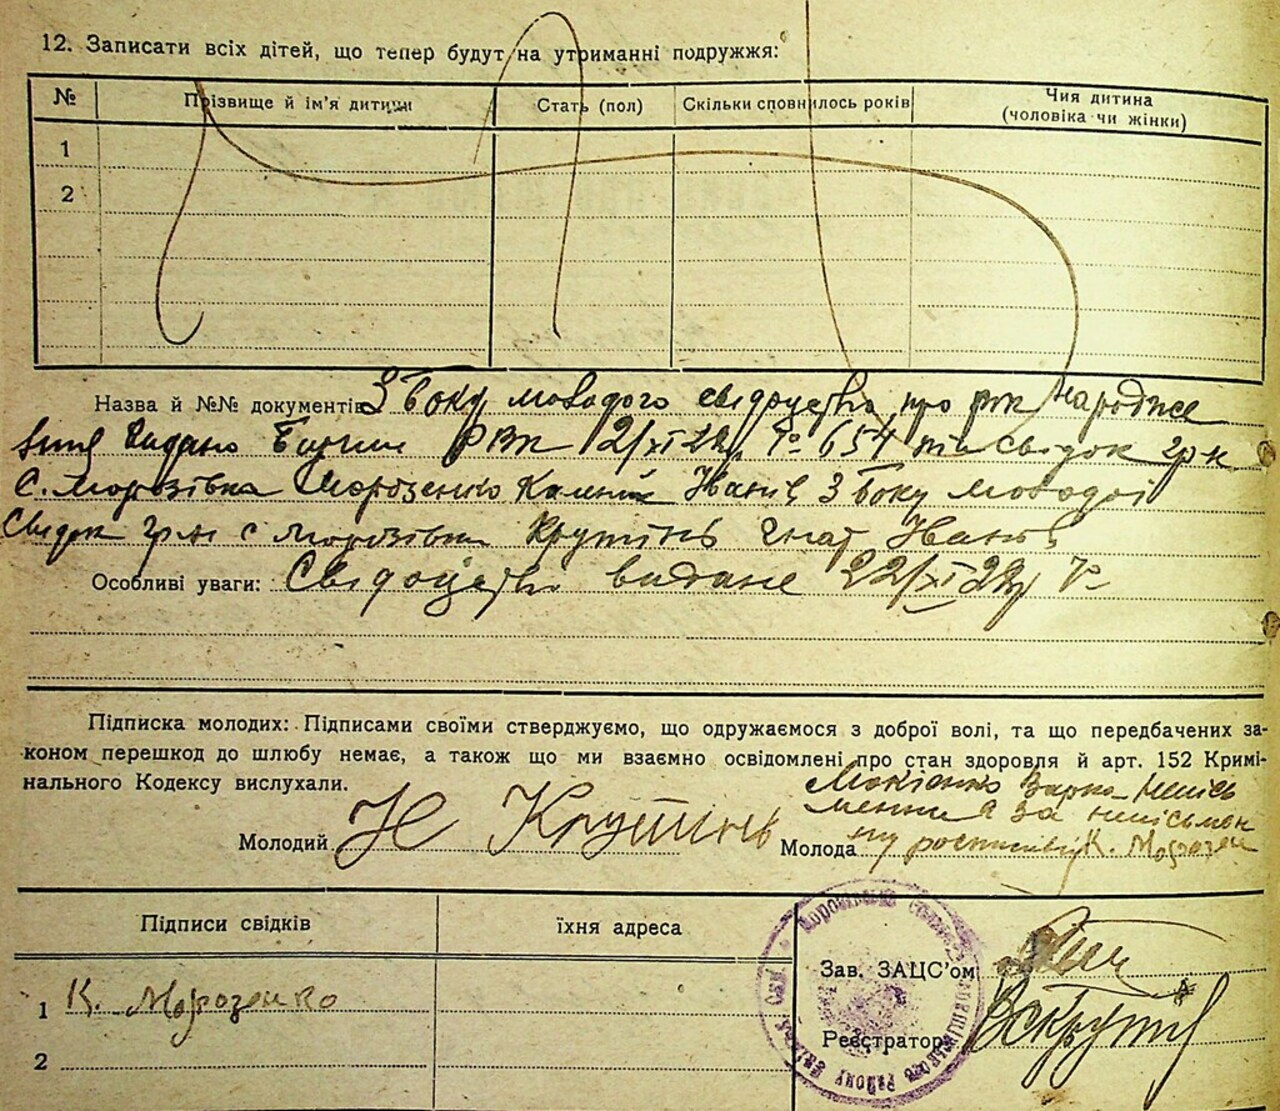 12. Записати всіх дітей, що тепер будут на утриманні подружжя:
№ Прізвище й ім'я дитини Стать (пол) Скільки сповнилось років Чия дитина
(чоловіка чи жінки)
1
2
Назва й №№ документів З боку молодого свідоцтво про рік народже
ння видано РВК 21/XI 22 654 та свідок гр-н
с. Морозівка Морозенко Іванів З боку молодої
свідок гр-н с Морозівки Крутінь Гнат Іванів
Особливі уваги: Свідоцтво видане 22/XI
Підписка молодих: Підписами своїми стверджуємо, що одружаємося з доброї волі, та що передбачених за-
коном перешкод до шлюбу немає, а також що ми взаємно освідомлені про стан здоровля й арт. 152 Кримі-
нального Кодексу вислухали.
Мокієнко Варка непісь
менна а за непісьмен
Молодий Н Крутинь Молода ну К. Морозен
Підписи свідків їхня адреса
Зав. ЗАЦС'ом
1 К. Морозенко
Реєстратор
2